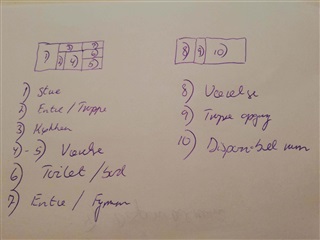 1) 3) 7) 2) 4) 6) 5)
8) 9) 10)
1) Stue
2) Entre / Trappe
3) Køkken
4) - 5) Værelse
6) Toilet / bad
7) Entre /
8) Værelse
9) Trappe opgang
10) Disponibel rum